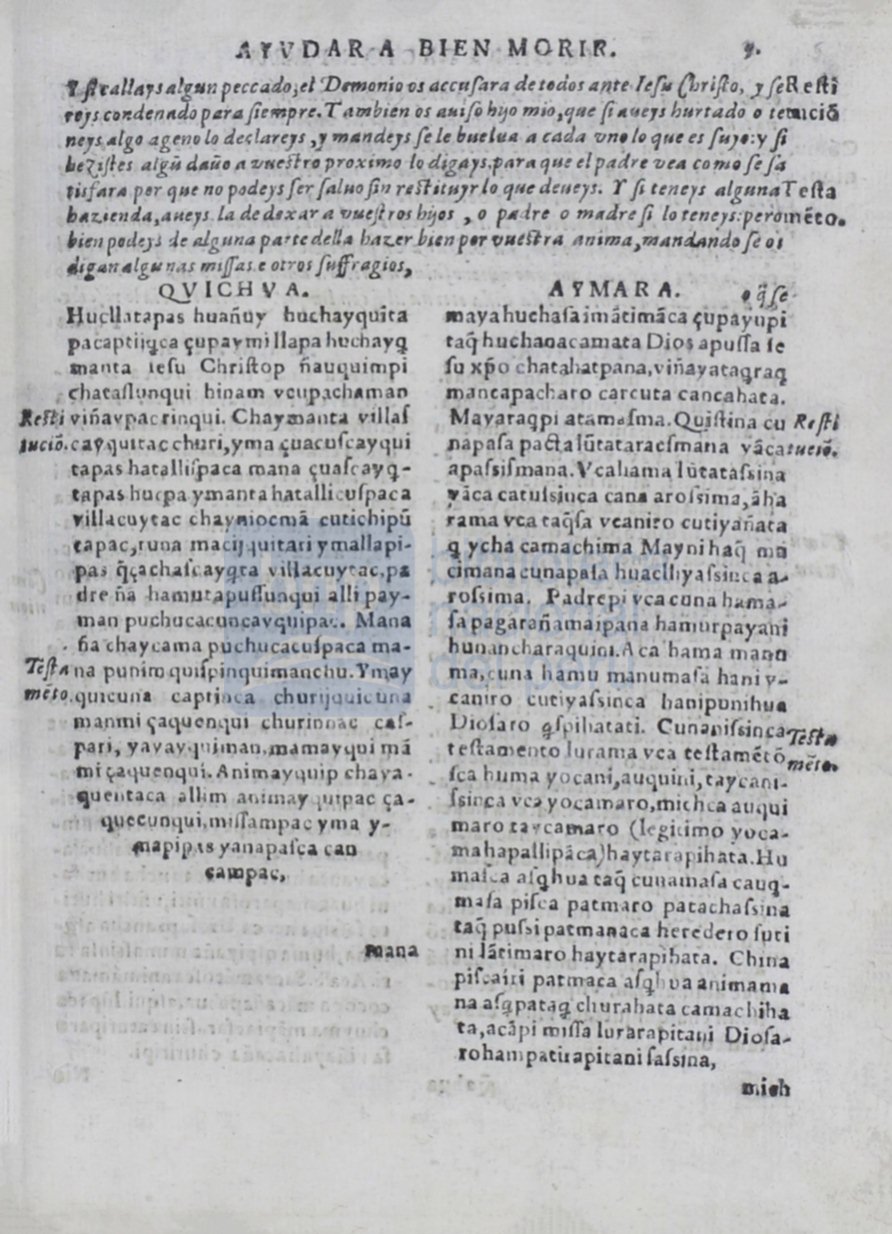 AYVDAR A BIEN MORIR. 9.
Y si callays algun peccado, el Demonio os accusara de todos ante Iesu Christo, y se
reys condenado para siempre. Tambien os auiso hijo mio, que si aueys hurtado o te
neys algo ageno lo declareys, y mandeys se le buelua a cada vno lo que es suyo: y si
hezistes algū daño a vuestro proximo lo digays. para que el padre vea como se sa
tisfara por que no podeys ser saluo sin restituyr lo que deueys. Y si teneys alguna
hazienda, aueys. la de dexar a vuestros hijos , o padre o madre si lo teneys: pero
bien podeys de alguna parte della hazer bien por vuestra anima, mandando se os
digan algunas missas. e otros suffragios,
Resti
tuciō
Testa
mēto.
QVICHVA.
Hucllatapas huañuy huchayquita
pacaptijq̄ca çupaymi llapa huchayq̄
manta iesu Christop ñauquimpi
chatasſunqui hinam vcupachaman
viñaypac rinqui. Chaymanta villas
cayquitac churi, yma çuacuscayqui
tapas hatallispaca mana çuascayq̄-
tapas hucpa ymanta hatallicuspaca
villacuytac chayniocmā cutichipū
tapac, runa macijquitari ymallapi-
pas q̄çachascayq̄ta villacuytac, pa
dre ña hamutapussunqui alli pay-
man puchucacuncayquipac. Mana
ña chaycama puchucacuspaca ma-
na punim quispinquimanchu. Ymay
quicuna captinca churijquicuna
manmi çaquenqui churinnac cas-
pari, yayayquiman, mamayqui mā
mi çaquenqui. Animayquip chaya-
quentaca allim animayquipac ça-
quecunqui, missampac yma y-
mapipas yanapasca can
campac,
mana
Resti
tuciō.
Testa
mēto.
AYMARA.
maya huchasa imātimāca çupayupi
taq̄ huchanacamata Dios apussa Ie
su xp̄o chatahatpana, viñayataq̄raq̄
mancapacharo carcuta cancahata.
Mayaraq̄pi atamasma. Quistina cu
napasa pacta lūtataraesmana vāca
apassismana. Vcahama lūtatassina
vāca catulsinca cana arossima, āha
rama vca taq̄sa vcaniro cutiyañata
q̄ ycha camachima Mayni haq̄ ma
cimana cunapasa huacllyassinca a-
rossima. Padrepi vca cuna hama-
sa pagarañamaipana hamurpayani
hunancharaquini. Aca hama mana
ma, cuna hamu manumasa hani v-
caniro cutiyassinca hanipunihua
Diosaro q̄spihatati. Cunanissinca
testamento lurama vca testamētō
sca huma yocani, auquini, taycani-
ssinca vca yocamaro, michca auqui
maro taycamaro (legitimo yoca-
ma hapallipāca) haytarapihata. Hu
masca asq̄hua taq̄ cunamasa cauq̄-
masa pisca patmaro patachassina
taq̄ pussi patmanaca heredero suti
ni lātimaro haytarapihata. China
piscairi patmaca asq̄hua animama
na asq̄pataq̄ churahata camachiha
ta, acāpi missa lurarapitani Diosa-
ro hampatirapitani sassina,
mich
Resti
tuciō.
Testa
mēto.